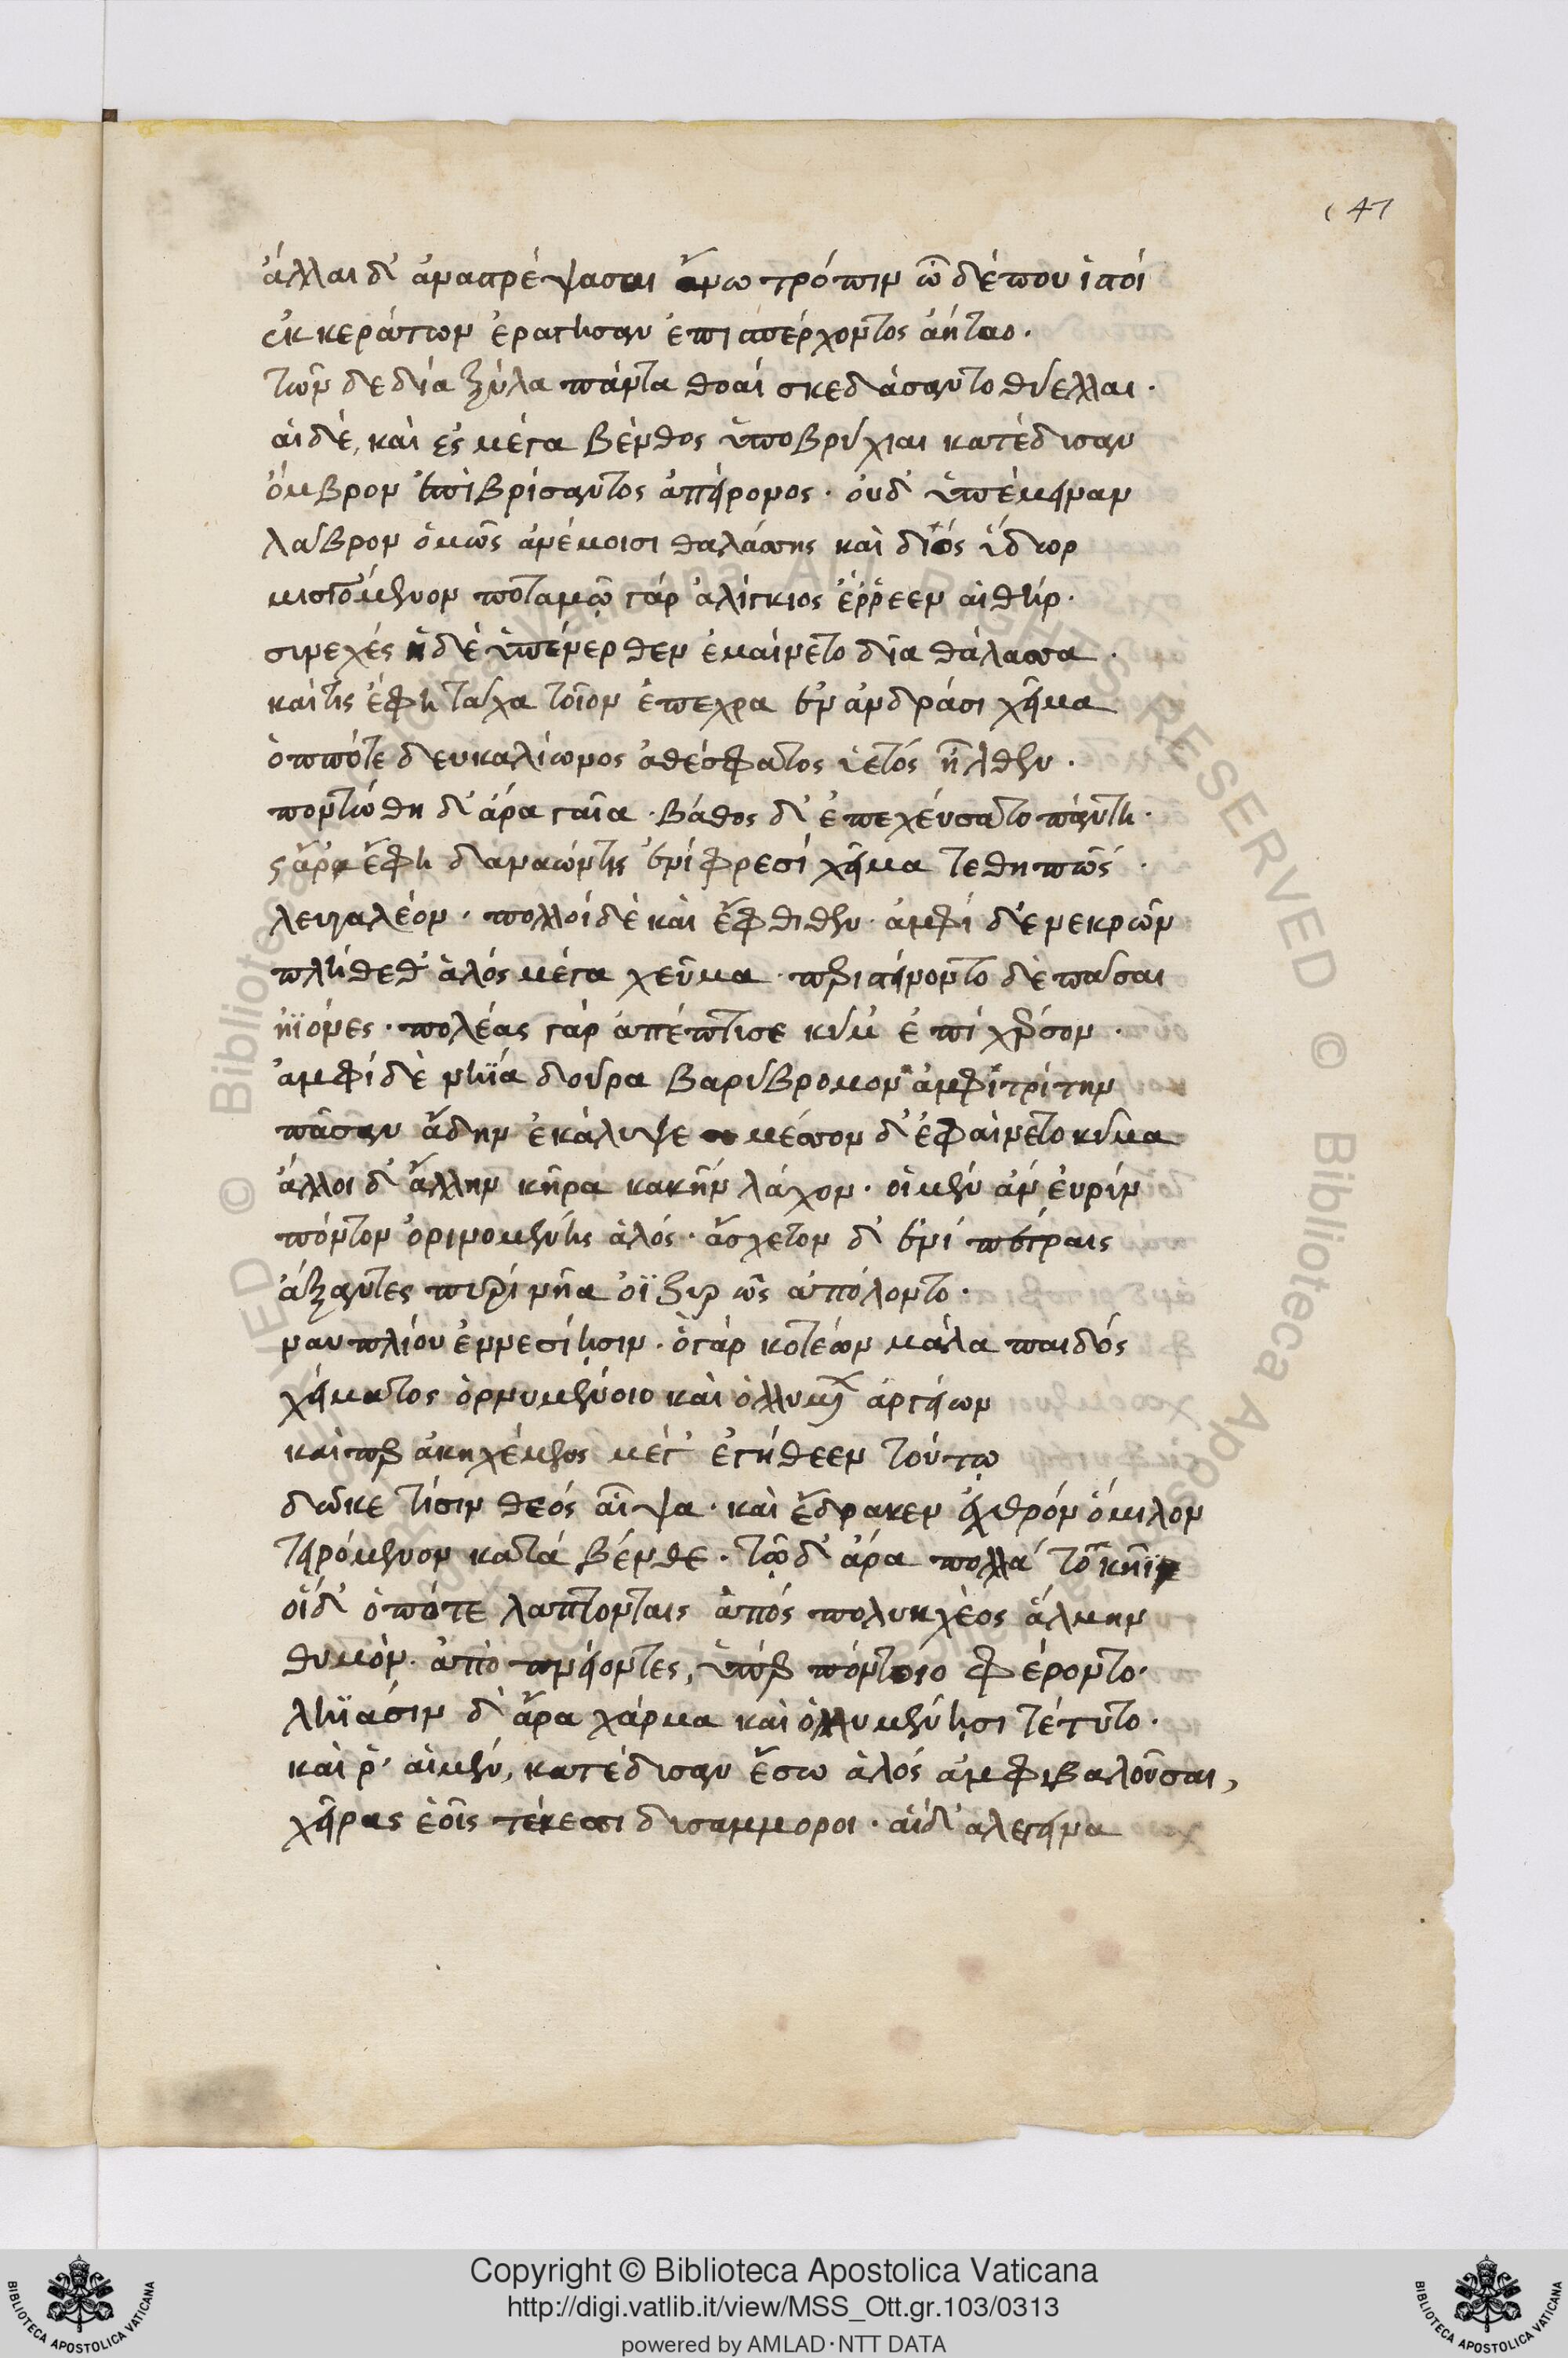 ἄλλαι δ' ἀναπρέψασαι ἄνω τρόπιν ὧ δέπου ἱστοί
ἐκ κεράτων ἐράγησαν ἐπισπέρχοντος ἀήταο.
τῶν δεδία ξύλα πάντα θοαί σκεδάσαντο θύελλαι.
αἱδὲ, καὶ ἐς μέγα βένθος ὑποβρύχιαι κατέδυσαν
ὄμβρον ἐπιβρίσαντος ἀπείρονος. οὐδ' ὑπέμειναν
λάβρον ὁμῶς ἀνέμοισι θαλάσσης καὶ διός ὕδωρ
μισγόμενον ποταμῷ γάρ ἀλίγκιος ἔρρεεν αἰθήρ.
συνεχές ἡδὲ ὑπένερθεν ἐμαίνετο δῖα θάλασσα.
καίτις ἔφη τάχα τοῖον ἐπεχρα ἐν ἀνδράσι χεῖμα
ὁππότε δευκαλίωνος ἀθέσφατος ὑετός ἦλθεν.
ποντώθη δ' ἄρα γαῖα. βάθος δ' ἐπεχεύσατο πάντη.
ς ἄρα ἔφη δαναώντις ἐνί φρεσί χεῖμα τεθηπώς.
λευγαλέον. πολλοί δὲ καὶ ἔφθιθεν. ἀμφί δὲ νεκρῶν
πλήθεθ' ἁλός μέγα χεῦμα. περιστείνοντο δὲ πᾶσαι
ἠϊόνες. πολέας γάρ ἀπέπτισε κῦμ' ἐπί χέρσον.
ἀμφί δὲ νηϊά δοῦρα βαρύβρομον ἀμφιτρίτην
πᾶσαν ἄδην ἐκάλυψε μέσσον δ' ἐφαίνετο κῦμα
ἄλλοι δ' ἄλλην κῆρα κακήν λάχον. οἱμὲν ἀν' εὐρύν
πόντον ὀρινομένης ἁλός. ἄσχετον δ' ἐνί πέτραις
ἄξαντες περί νῆα οἰξυρῶς ἀπόλοντο.
ναυπλίου ἐννεσίῃσιν. ὁγάρ κοτέων μάλα παιδός
χείματος ὀρνυμένοιο καὶ ὀλλυμένων ἀργείων
καίπερ ἀκηχέμενος μέγ' ἐγήθεεν τούτῳ
δῶκε τίσιν θεός αἶψα. καὶ ἔδρακεν ἐχθρόν ὅμιλον
τειρόμενον κατά βένθε. τῷδ' ἄρα πολλά τοκῆϊ
οἵδ' ὁπότε λαπτονταις ἀπός πολυηχέος ἅλμην
θυμόν. ἀπό πνείοντες, ὑπέρ πόντοιο φέροντο.
ληϊάσιν δ' ἄρα χάρμα καὶ ὀλλυμένῃσι τέτυτο.
καὶ ῥ' αἱμὲν, κατέδυσαν ἔσω ἁλός ἀμφιβαλοῦσαι,
χεῖρας ἑοῖς τέκεσσι δυσαμμοροι. αἵδ' ἀλεγεινα
47
Copyright © Biblioteca Apostolica Vaticana
http://digi.vatlib.it/view/MSS_Ott.gr.103/0313
powered by AMLAD·NTT DATA